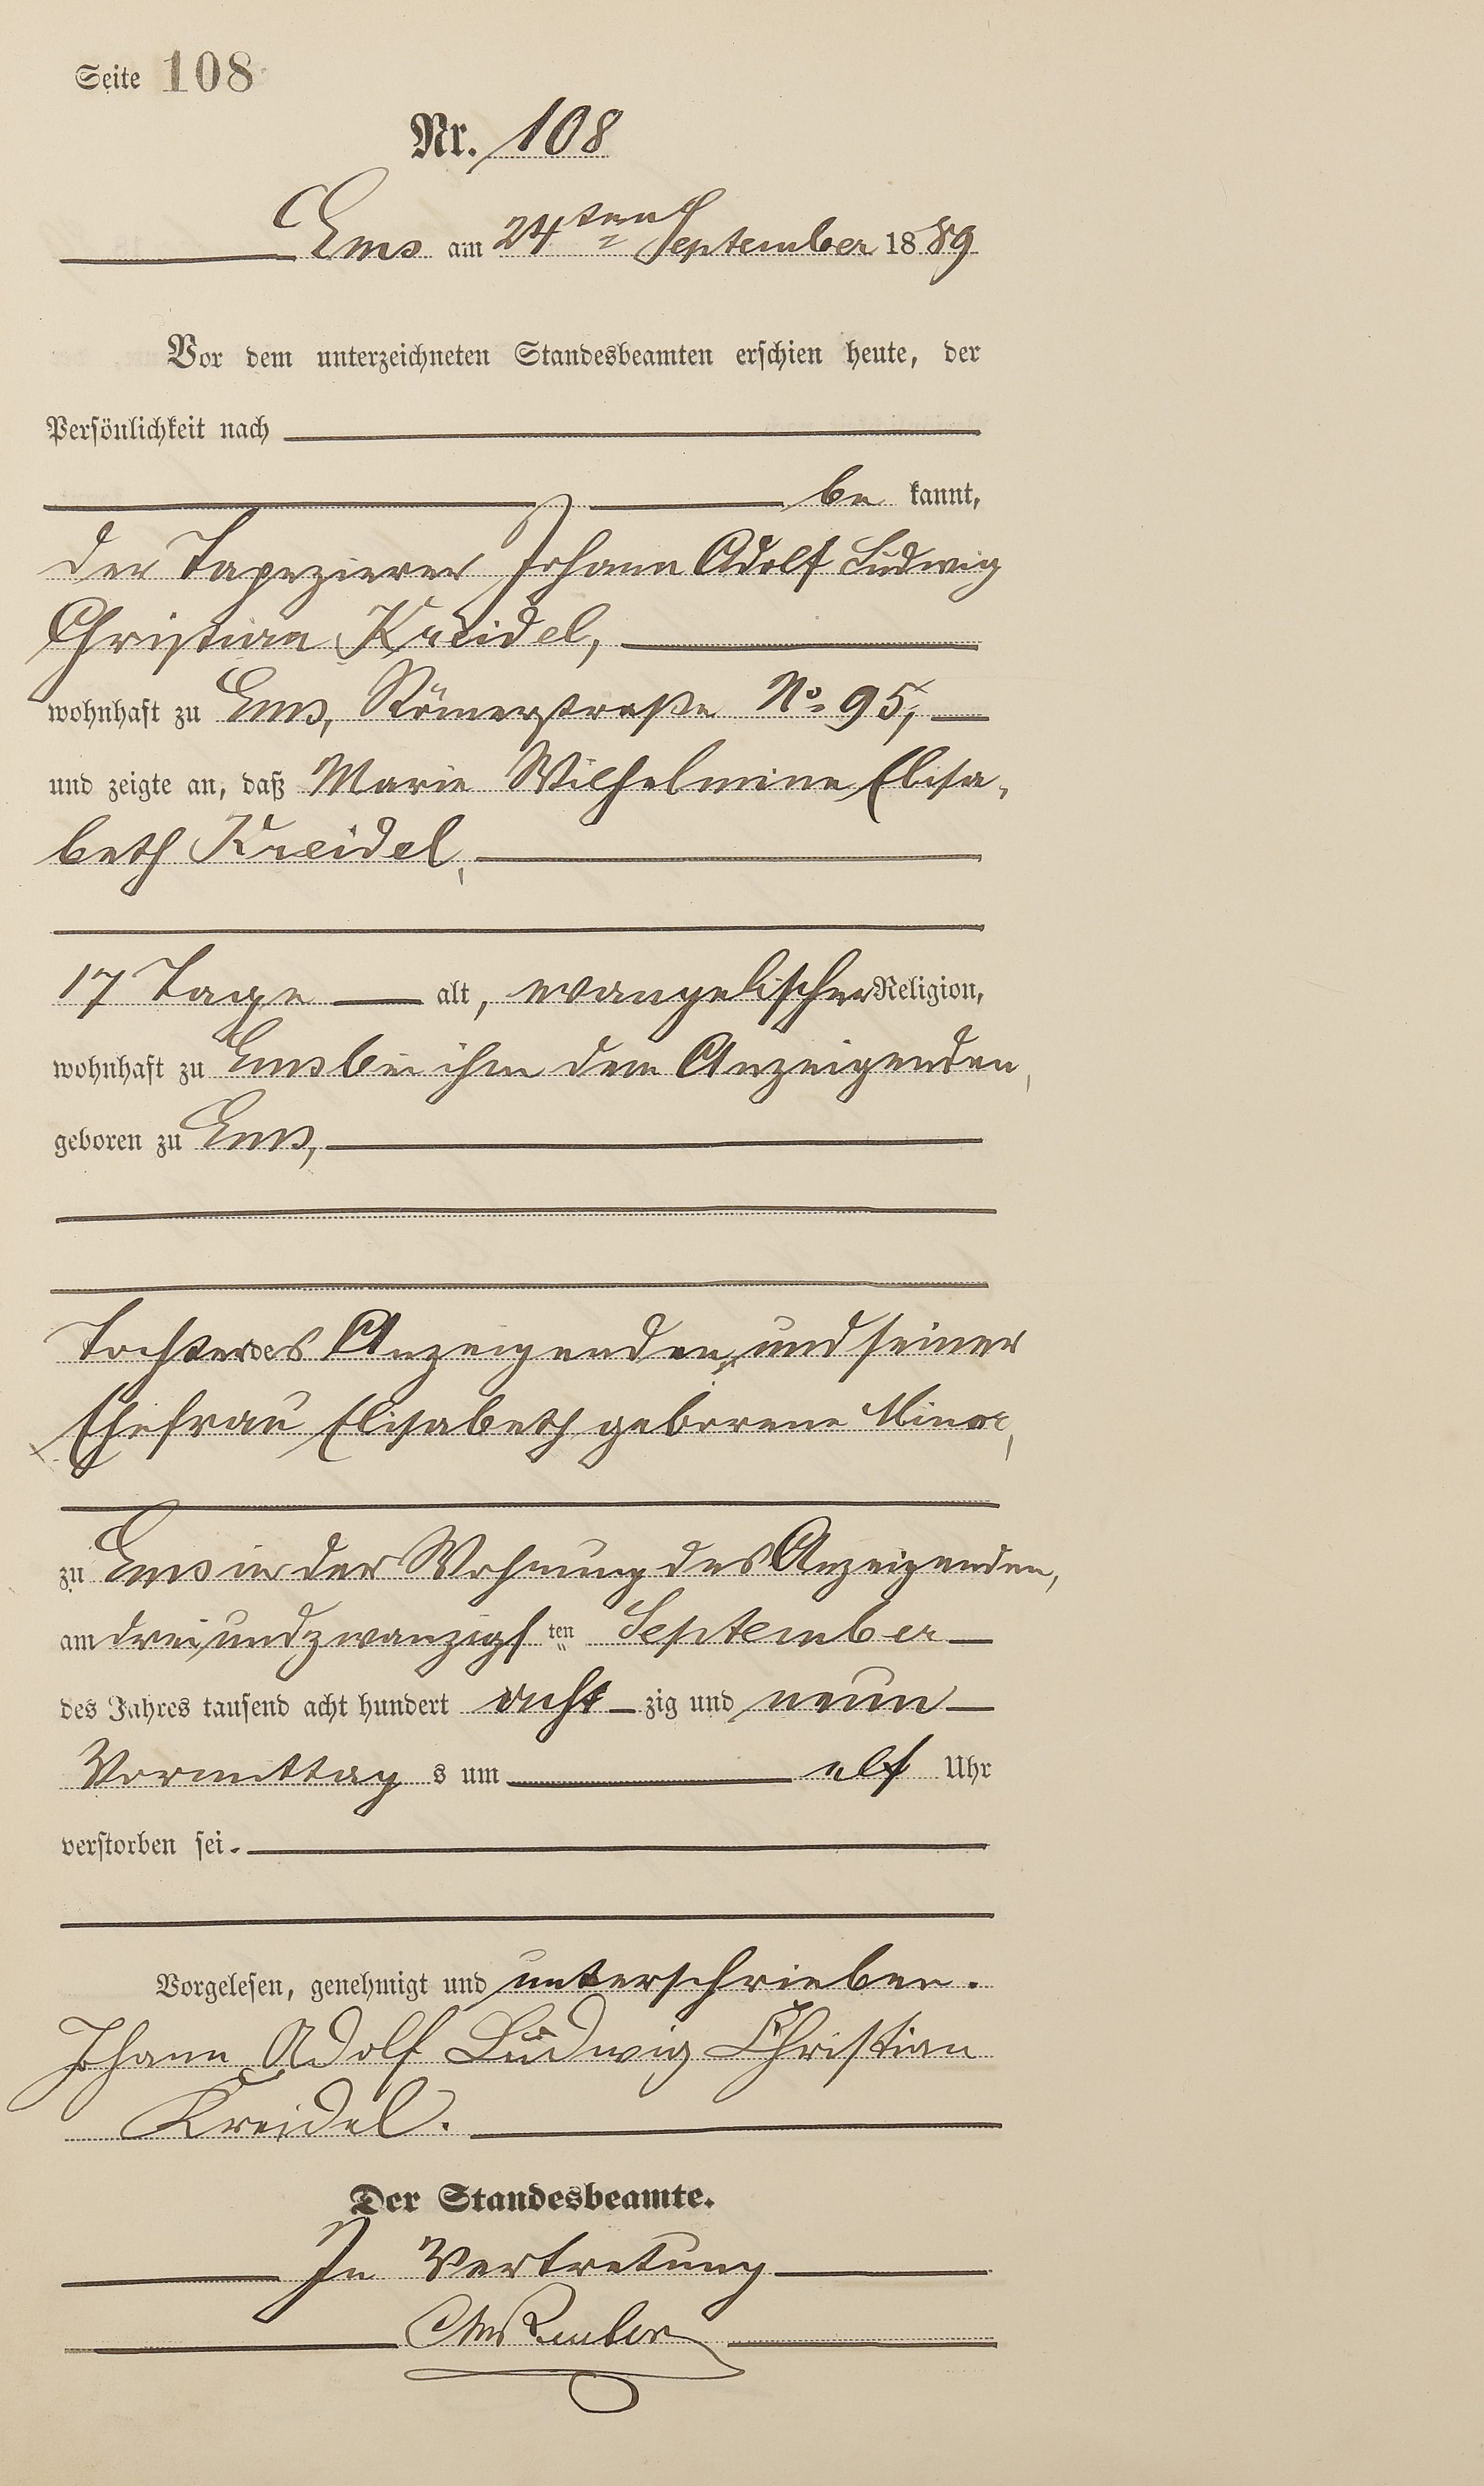 Seite 108
Nr. 108
Ems am 24ten September 1889
Vor dem unterzeichneten Standesbeamten erschien heute, der
Persönlichkeit nach
be kannt,
der Tapezierer Johann Adolf Ludwig
Christian Kreidel,
wohnhaft zu Ems, Römerstraße No 95,
und zeigte an, daß Marie Wilhelmine Elisa-
beth Kreidel,
17 Tage alt, evangelischer Religion,
wohnhaft zu Ems bei ihm dem Anzeigenden,
geboren zu Ems,
Tochter des Anzeigenden, und seiner
Ehefrau Elisabeth geborene Minor,
zu Ems in der Wohnung des Anzeigenden,
am dreiundzwanzigsten September
des Jahres tausend acht hundert acht zig und neun
Vormittag s um elf Uhr
verstorben sei.
Vorgelesen, genehmigt und unterschrieben.
Johann Adolf Ludwig Christian
Kreidel.
Der Standesbeamte.
In Vertretung